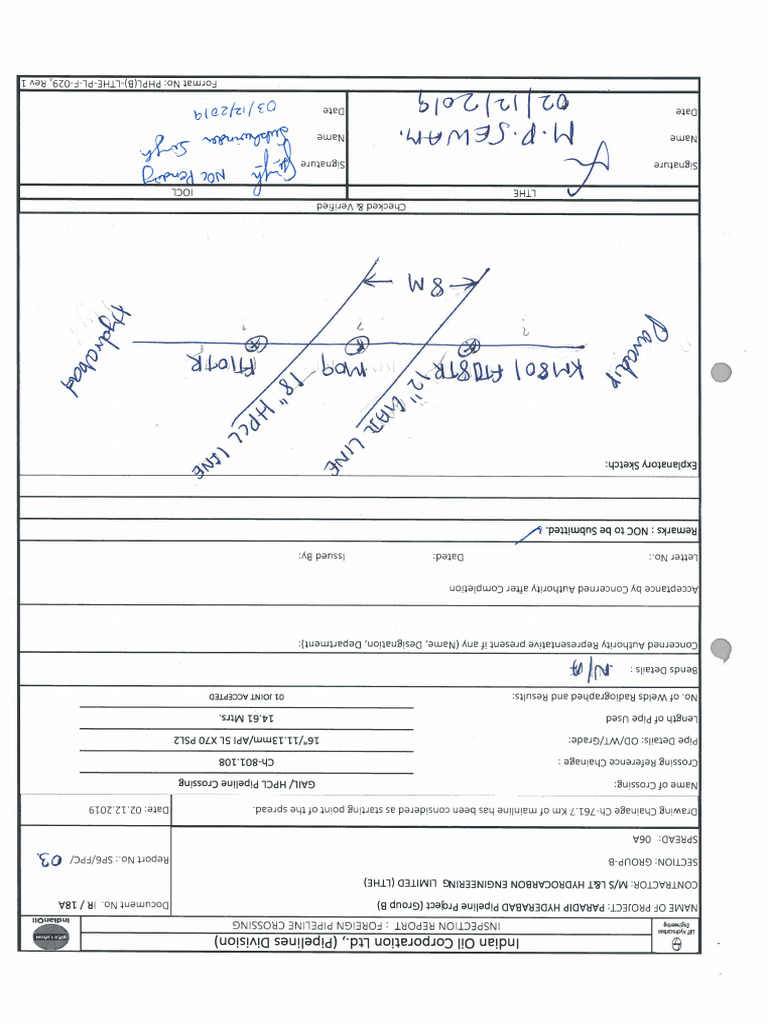 Indian Oil Corporation Ltd., (Pipelines Division)
INSPECTION REPORT : FOREIGN PIPELINE CROSSING
L&T Hydrocarbon
Engineering
IndianOil
NAME OF PROJECT: PARADIP HYDERABAD Pipeline Project (Group B)
CONTRACTOR: M/S L&T HYDROCARBON ENGINEERING LIMITED (LTHE)
SECTION: GROUP-B
SPREAD: 06A
Document No. IR / 18A
Report No.: SP6/FPC/ 03.
Drawing Chainage Ch-761.7 Km of mainline has been considered as starting point of the spread.
Date: 02.12.2019
Name of Crossing: GAIL/ HPCL Pipeline Crossing
Crossing Reference Chainage : Ch-801.108
Pipe Details: OD/WT/Grade: 16"/11.13mm/API 5L X70 PSL2
Length of Pipe Used 14.61 Mtrs.
No. of Welds Radiographed and Results: 01 JOINT ACCEPTED
Bends Details : N/A
Concerned Authority Representative present if any (Name, Designation, Department):
Acceptance by Concerned Authority after Completion
Letter No.: Dated: Issued By:
Remarks : NOC to be Submitted.
Explanatory Sketch:
12" GAIL LINE
18" HPCL LINE
Paradip
KM801 FT08TR
M09
FT109TR
Hydrabad
8 M
Checked & Verified
LTHE
IOCL
Signature
Signature
NOC Pending
Name M.P.SEWAM.
Name Sukhwinder Singh
Date 02/12/2019
Date 03/12/2019
Format No: PHPL(B)-LTHE-PL-F-029, Rev 1